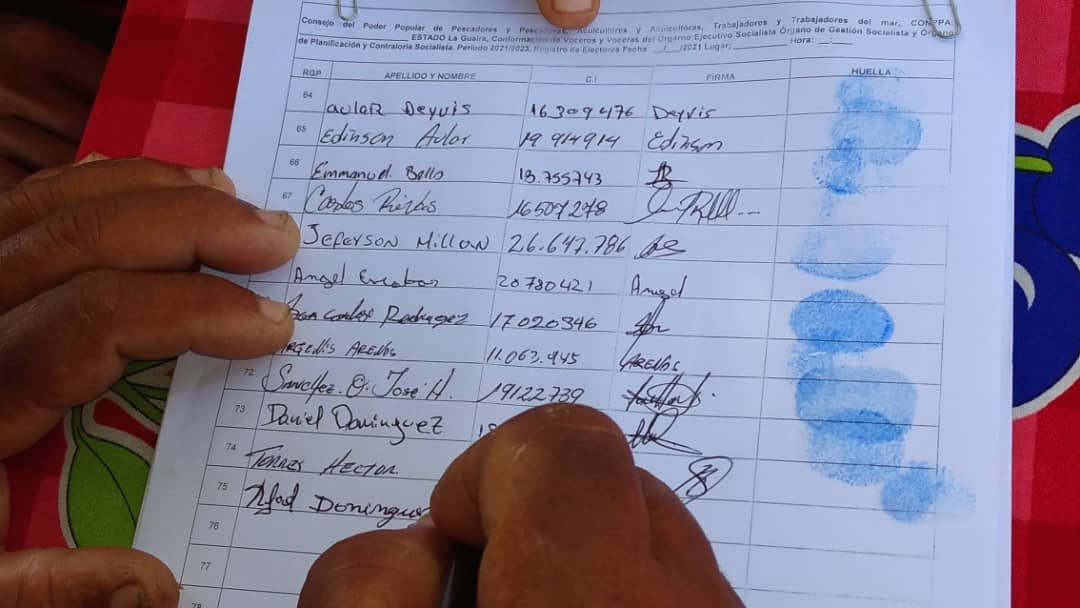 Consejo del Poder Popular de Pescadores y Pescadoras, Acuicultores y Acuicultoras, Trabajadores y Trabajadores del mar, CONPPA:
ESTADO La Guaira, Conformación de Voceros y Voceras del Órgano Ejecutivo Socialista Órgano de Gestión Socialista y Órgano
de Planificación y Contraloría Socialista. Periodo 2021/2023. Registro de Electores Fecha __/__/2021 Lugar: ________ Hora: __:__
RGP APELLIDO Y NOMBRE C.I FIRMA HUELLA
64 aular Deyvis 16309476 Deyvis
65 Edinson Aular 19 914914 Edinson
66 Emmanuel. Bello 18.755743
67 Carlos 16507278
Jeferson Millan 26.647.786
Angel Escobar 20780421 Angel
Carlos Rodriguez 17020346
Arenas 11.063.445 Arenas
72 Sanchez. O. José H. 19122739
73 Daniel Dominguez
74 Torres Hector
75 Dominguez
76
77
78